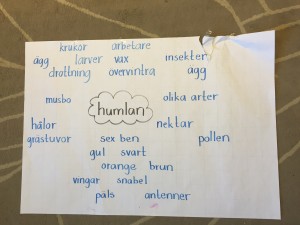 krukor arbetare
ägg larver vax insekter
drottning övervintra ägg
musbo olika arter
humlan
hålor nektar
grästuvor sex ben pollen
gul svart
orange brun
vingar snabel
päls antenner